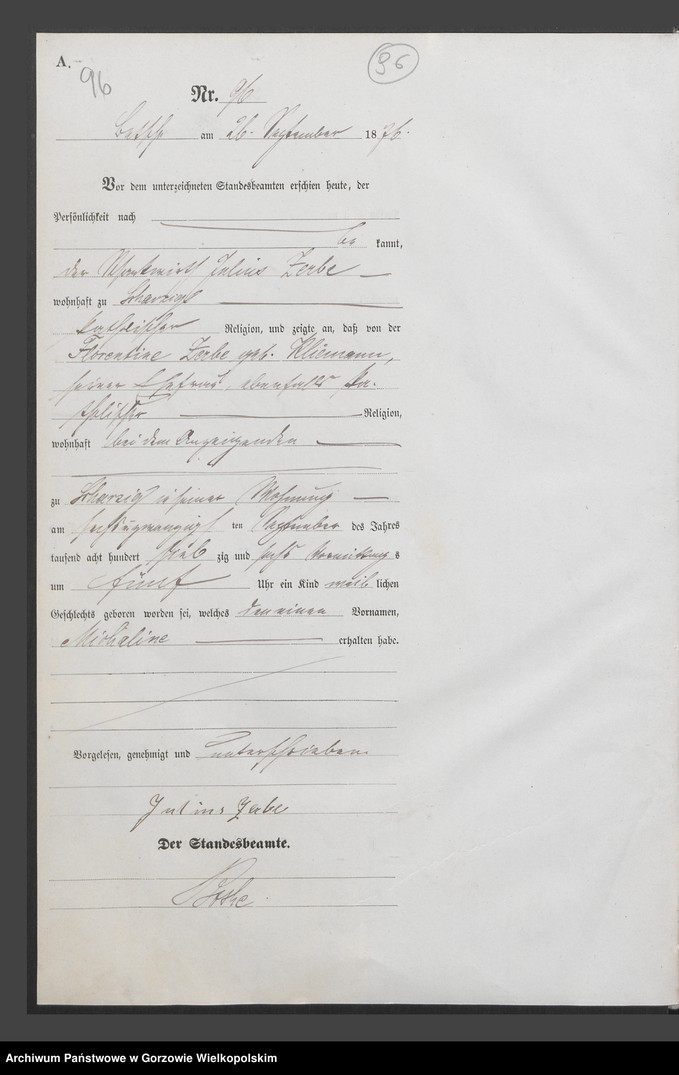 A.
96
96
Nr. 96
Betsche am 26. September 1876.
Vor dem unterzeichneten Standesbeamten erschien heute, der
Persönlichkeit nach
be kannt,
der Julius Zerbe
wohnhaft zu Scharzig
katholischer Religion, und zeigte an, daß von der
Florentine Zerbe geb. Kliemann,
seiner Ehefrau, ebenfalls ka-
tholischer Religion,
wohnhaft bei dem Anzeigenden
zu Scharzig in seiner Wohnung
am sechsundzwanzigsten ten September des Jahres
tausend acht hundert sieb zig und sechs Vormittag s
um fünf Uhr ein Kind weib lichen
Geschlechts geboren worden sei, welches den einen Vornamen,
Michaline erhalten habe.
Vorgelesen, genehmigt und unterschrieben
Julius Zerbe
Der Standesbeamte.
Archiwum Państwowe w Gorzowie Wielkopolskim